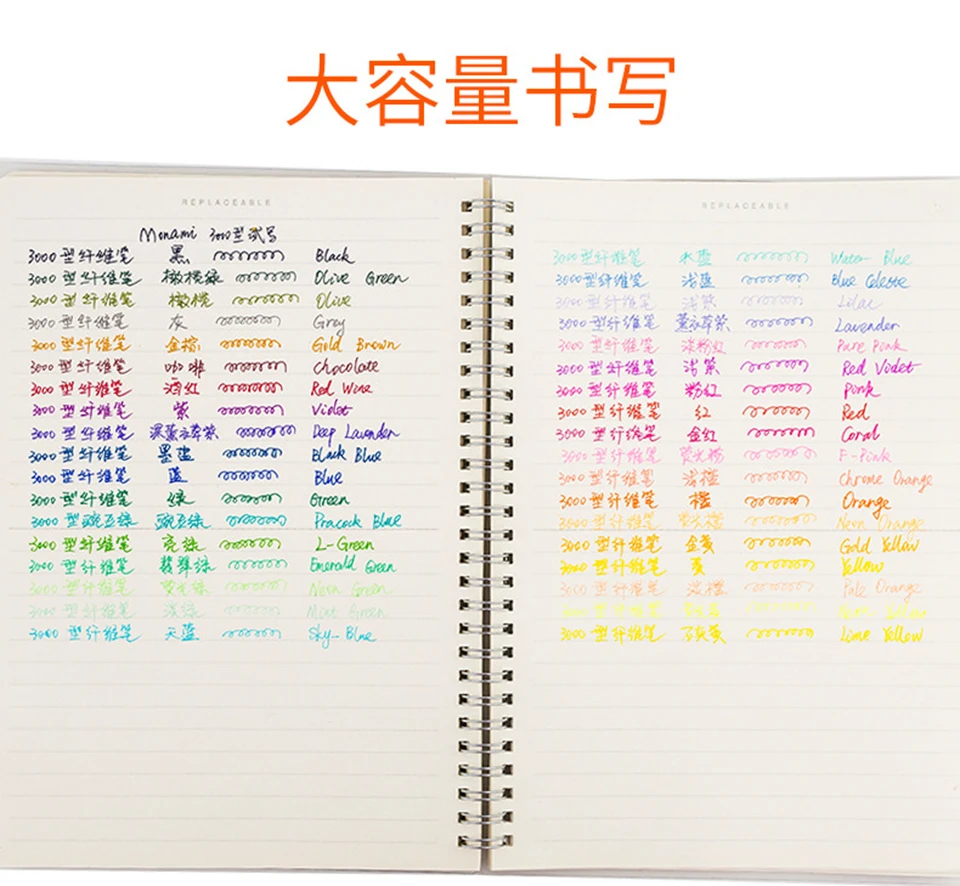 大容量书写
REPLACEABLE
Monami 3000型试写
3000型纤维笔 黑 Black
3000型纤维笔 橄榄绿 Olive Green
3000型纤维笔 橄榄 Olive
3000型纤维笔 灰 Grey
3000型纤维笔 金棕 Gold Brown
3000型纤维笔 咖啡 Chocolate
3000型纤维笔 酒红 Red Wine
3000型纤维笔 紫 Violet
3000型纤维笔 深薰衣草紫 Deep Lavender
3000型纤维笔 墨蓝 Black Blue
3000型纤维笔 蓝 Blue
3000型纤维笔 绿 Green
3000型纤维笔 豌豆绿 Peacock Blue
3000型纤维笔 亮绿 L-Green
3000型纤维笔 翡翠绿 Emerald Green
3000型纤维笔 荧光绿 Neon Green
3000型纤维笔 淡绿 Mint Green
3000型纤维笔 天蓝 Sky-Blue
REPLACEABLE
3000型纤维笔 水蓝 Water-Blue
3000型纤维笔 浅蓝 Blue Celeste
3000型纤维笔 浅紫 Lilac
3000型纤维笔 薰衣草紫 Lavender
3000型纤维笔 淡粉红 Pure Pink
3000型纤维笔 浅紫 Red Violet
3000型纤维笔 粉红 Pink
3000型纤维笔 红 Red
3000型纤维笔 金红 Coral
3000型纤维笔 荧光粉 F-Pink
3000型纤维笔 浅橙 Chrome Orange
3000型纤维笔 橙 Orange
3000型纤维笔 荧光橙 Neon Orange
3000型纤维笔 金黄 Gold Yellow
3000型纤维笔 黄 Yellow
3000型纤维笔 淡橙 Pale Orange
3000型纤维笔 Neon Yellow
3000型纤维笔 Lime Yellow